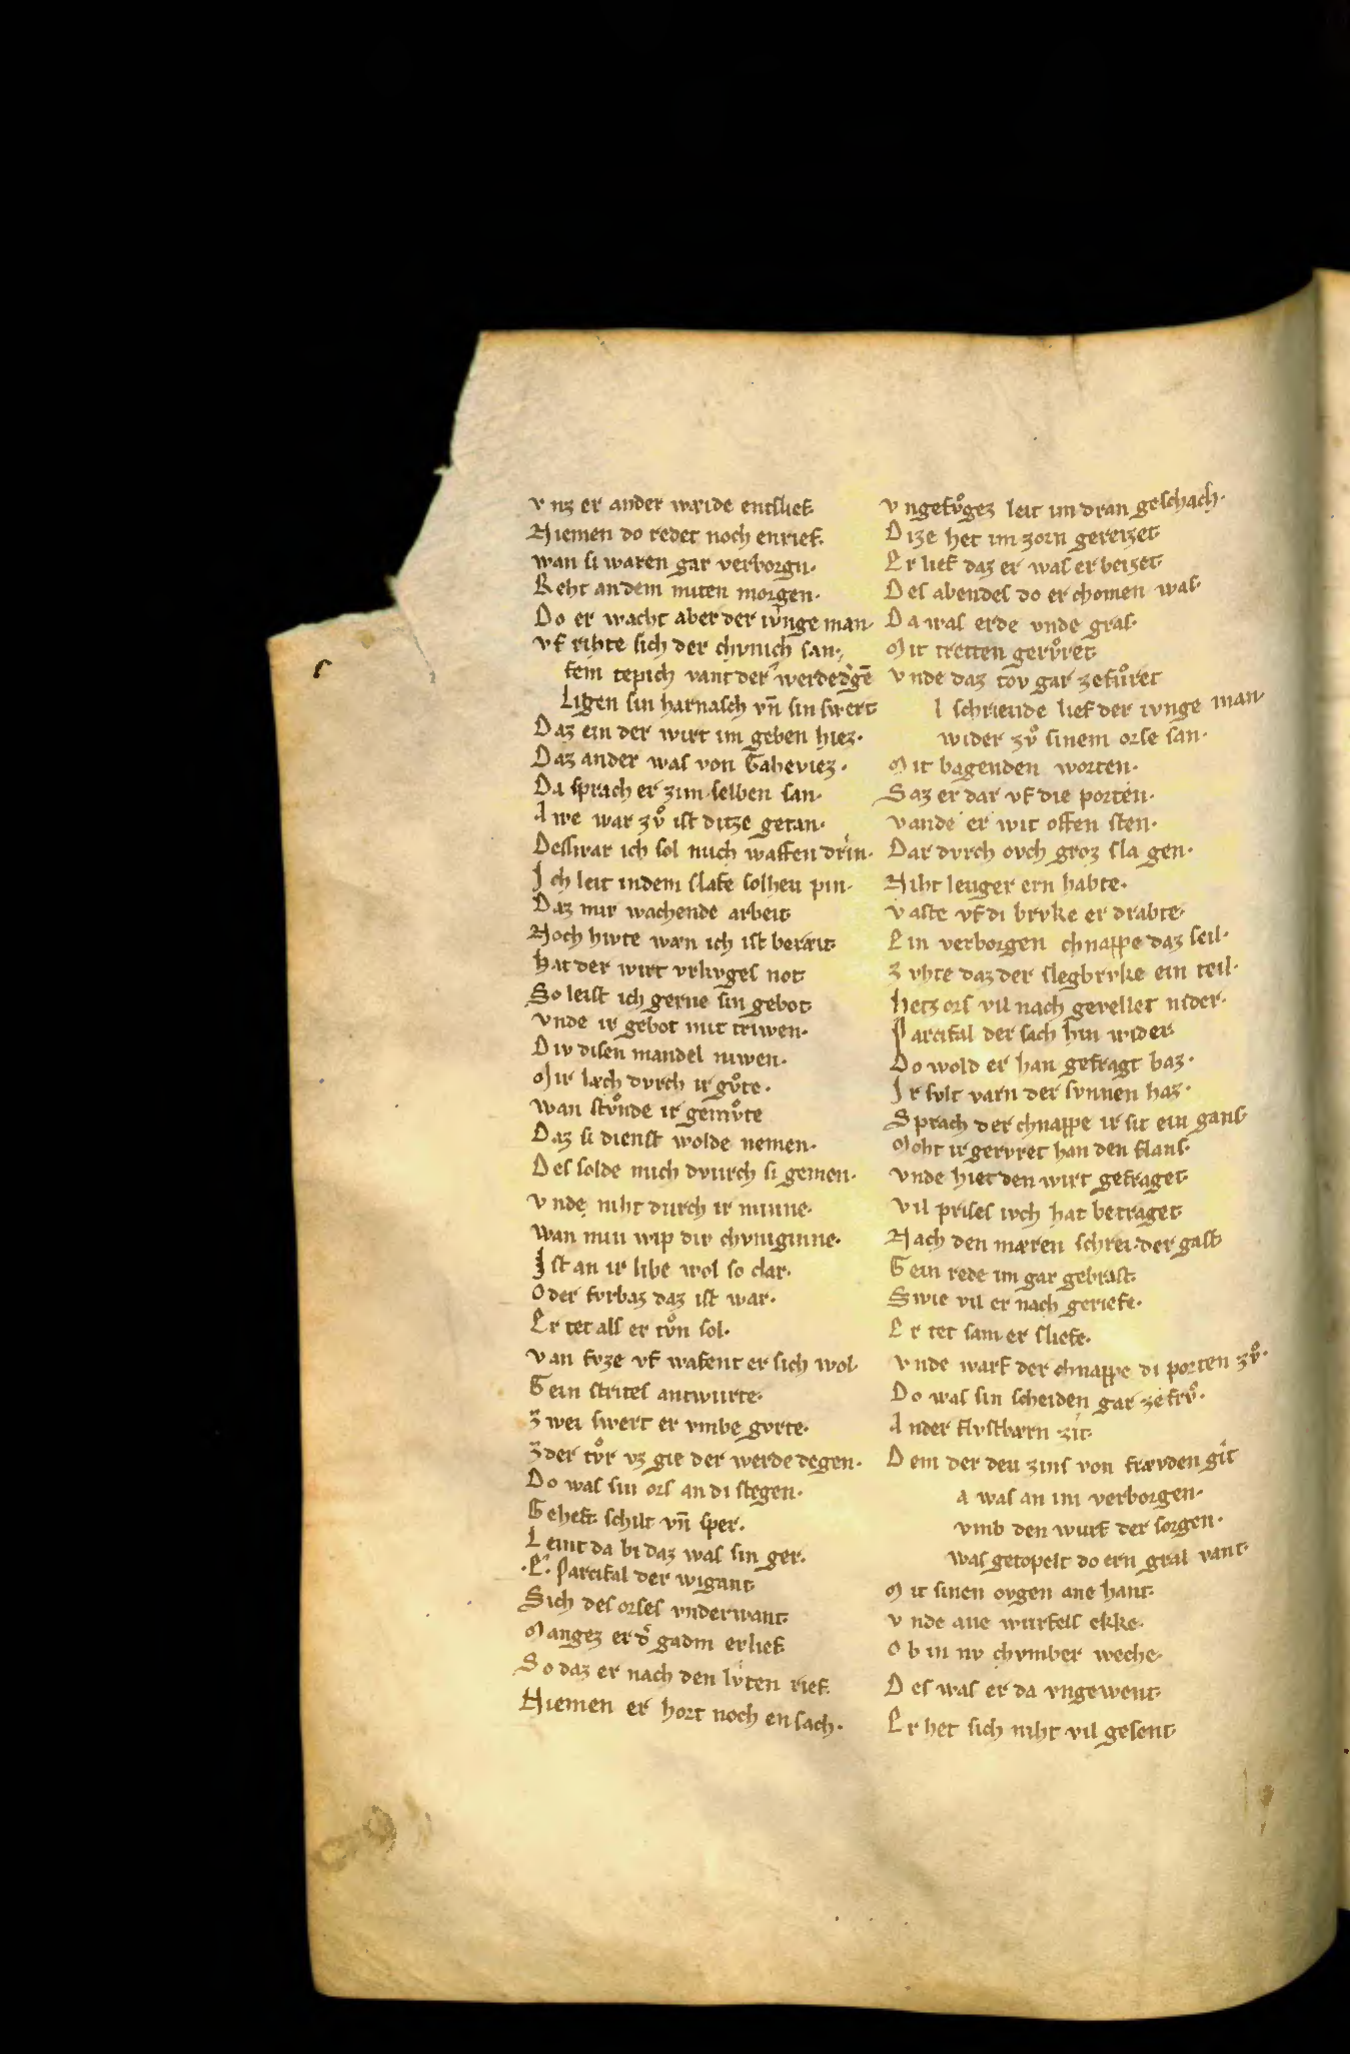 v nz er ander wæide entslief.
Niemen do redet noch enrief.
wan si waren gar verborgn.
Reht an dem miten morgen.
Do er wacht aber der ivnge man.
vf rihte sich der chvnich san.
fem tepich vant der werdedgē
Ligen sin harnasch vn̄ sin swert
Daz ein der wirt im geben hiez.
Daz ander was von Gaheviez.
Da sprach er zim selben san.
A we war zvͦ ist ditze getan.
Deswar ich sol mich waffen drin.
I ch leit indem slafe solheu pin.
Daz mir wachende arbeit
Noch hivte wæn ich ist beræit
hat der wirt vrlivges not
So leist ich gerne sin gebot
vnde ir gebot mit triwen.
Div disen mandel niwen.
Mir læch dvrch ir gvͦte.
wan stvͦnde ir gemvͦte
Daz si dienst wolde nemen.
Des solde mich dvurch si gemen.
v nde niht durch ir minne.
wan min wip div chvniginne.
I st an ir libe wol so clar.
O der fvrbaz daz ist war.
Er tet als er tvͦn sol.
v an fvze vf wafent er sich wol.
Gein strites antwurte.
Zwei swert er vmbe gvrte.
Zder tvͦr vz gie der werde degen.
Do was sin ors an di stegen.
Geheft schilt vn̄ sper.
Leint da bi daz was sin ger.
.E. Parcifal der wigant
Sich des orses vnderwant
Mangez er dͦ gadm erlief
So daz er nach den lvͥten rief.
Niemen er hort noch ensach.
v ngefvͦgez leit im dran geschach.
Dize het im zorn gereizet
Er lief daz er was erbeizet
Des abendes do er chomen was.
Da was erde vnde gras.
Mit tretten gervͦret
vnde daz tov gar zefuͦret
l schriende lief der ivnge man.
wider zvͦ sinem orse san.
Mit bagenden worten.
Saz er dar vf die porten.
vande er wit offen sten.
Dar dvrch ovch groz sla gen.
Niht lenger ern habte.
vaste vf di brvke er drabte.
Ein verborgen chnappe daz seil.
Z vhte daz der slegbrvke ein teil.
hetz ors vil nach gevellet nider.
Parcifal der sach hin wider
Do wold er han gefragt baz.
Ir svlt varn der svnnen haz.
Sprach der chnappe ir sit ein gans.
Moht ir gervret han den flans.
vnde hiet den wirt gefraget
vil prises ivch hat betraget
Nach den mæren schrei der gast
Gein rede im gar gebrast
Swie vil er nach geriefe.
Er tet sam er sliefe.
vnde warf der chnappe di porten zvͦ.
Do was sin scheiden gar zefrvͦ.
A nder flvstbærn zit
Dem der den zins von frævden git
a was an im verborgen.
vmb den wurf der sorgen.
was getopelt do ern gral vant.
Mit sinen ovgen ane hant.
v nde ane wurfels ekke.
O b in nv chvmber weche.
Des was er da vngewent.
Er het sich niht vil gesent